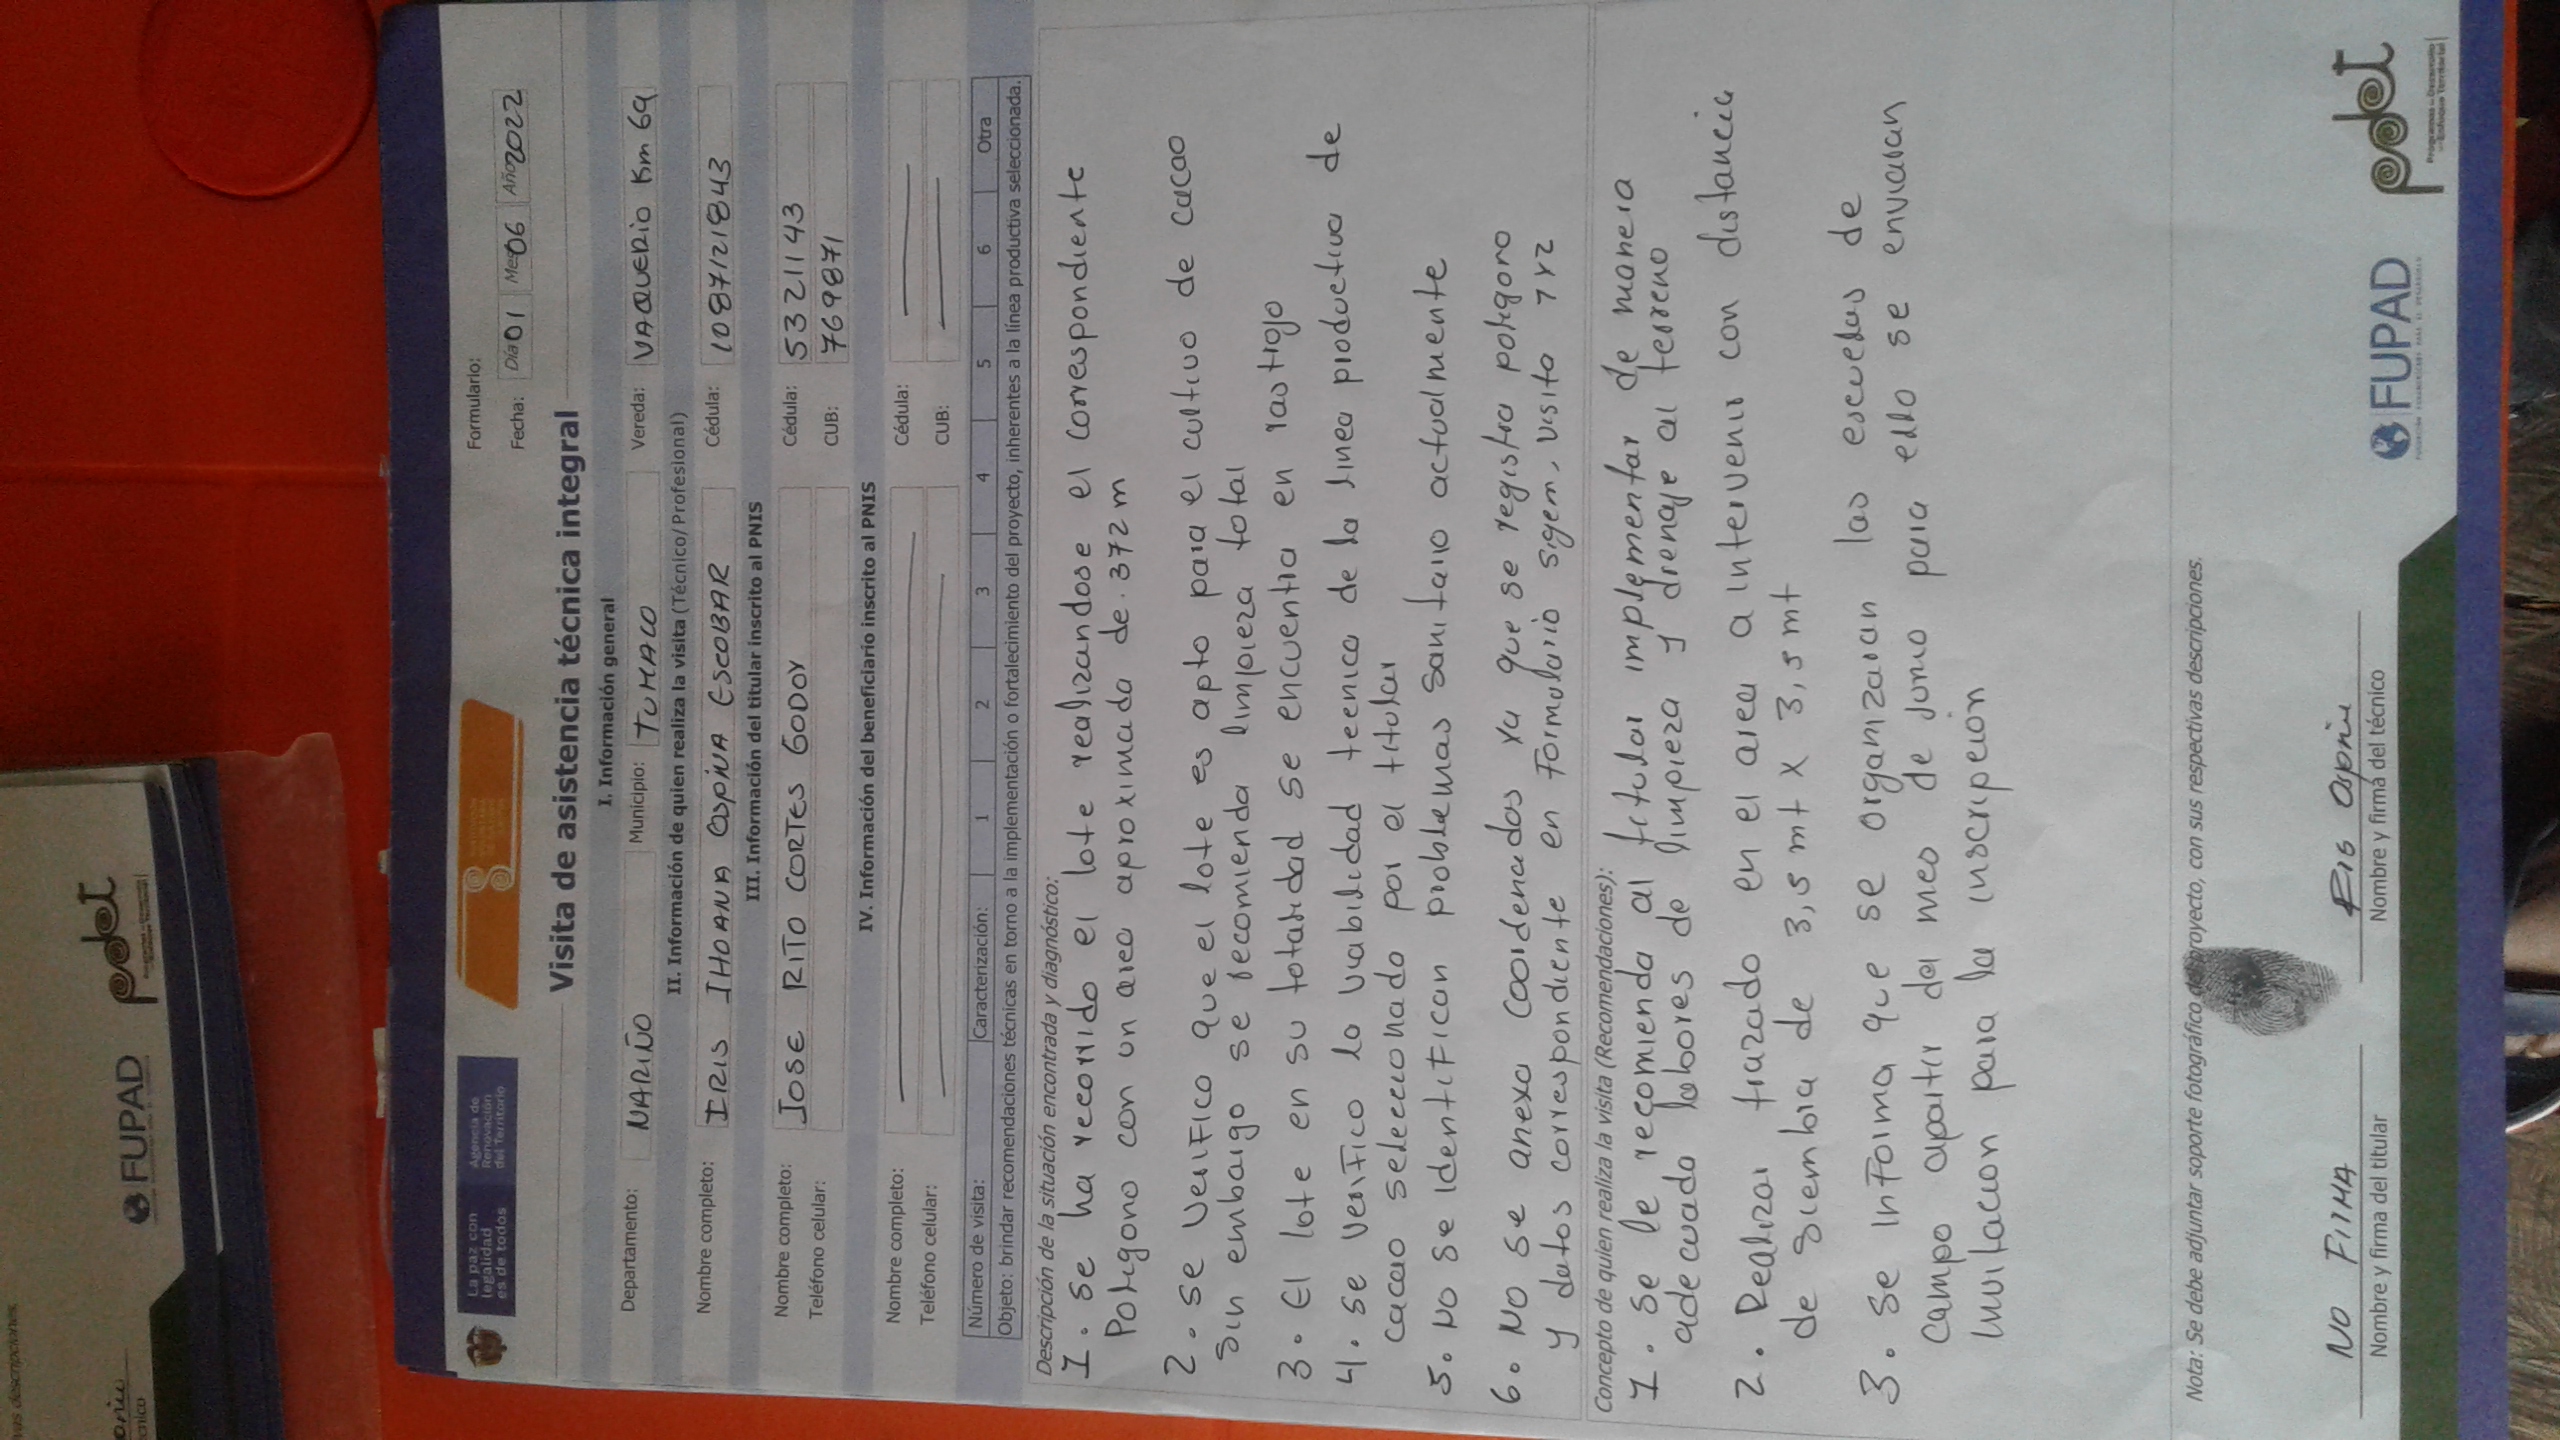 La paz con
legalidad
es de todos
Agencia de
Renovación
del Territorio
Formulario:
Fecha: Día 01 Mes 06 Año 2022
Visita de asistencia técnica integral
I. Información general
Departamento: NARIÑO Municipio: TUMACO Vereda: VAQUERIO Km 69
II. Información de quien realiza la visita (Técnico/Profesional)
Nombre completo: IRIS IHOANA OSPINA ESCOBAR Cédula: 1087121843
III. Información del titular inscrito al PNIS
Nombre completo: JOSE RITO CORTES GODOY Cédula: 5321143
Teléfono celular: CUB: 769871
IV. Información del beneficiario inscrito al PNIS
Nombre completo: Cédula:
Teléfono celular: CUB:
Número de visita: Caracterización: 1 2 3 4 5 6 Otra
Objeto: brindar recomendaciones técnicas en torno a la implementación o fortalecimiento del proyecto, inherentes a la línea productiva seleccionada.
Descripción de la situación encontrada y diagnóstico:
1. se ha recorrido el lote realizandose el correspondiente
Poligono con un area aproximada de. 372 m
2. se verifico que el lote es apto para el cultivo de cacao
sin embargo se recomienda limpieza total
3. El lote en su totalidad se encuentra en rastrojo
4. se verifico la viabilidad tecnica de la linea productiva de
cacao seleccionado por el titular
5. No se identifican problemas sanitario actualmente
6. No se anexa coordenadas ya que se registra poligono
y datos correspondiente en Formulario sigem, visita 1 y 2
Concepto de quien realiza la visita (Recomendaciones):
1. se le recomienda al titular implementar de manera
adecuada labores de limpieza y drenaje al terreno
2. Realizar trazado en el area a intervenir con distancia
de siembra de 3,5 mt x 3,5 mt
3. se informa que se organizaran las escuelas de
campo apartir del mes de junio para ello se enviaran
invitacion para la inscripcion
Nota: Se debe adjuntar soporte fotográfico del proyecto, con sus respectivas descripciones.
NO FIRMA
Nombre y firma del titular
Iris Ospina
Nombre y firma del técnico
FUPAD
pdet
Programas de Desarrollo
con Enfoque Territorial
FUPAD
pdet